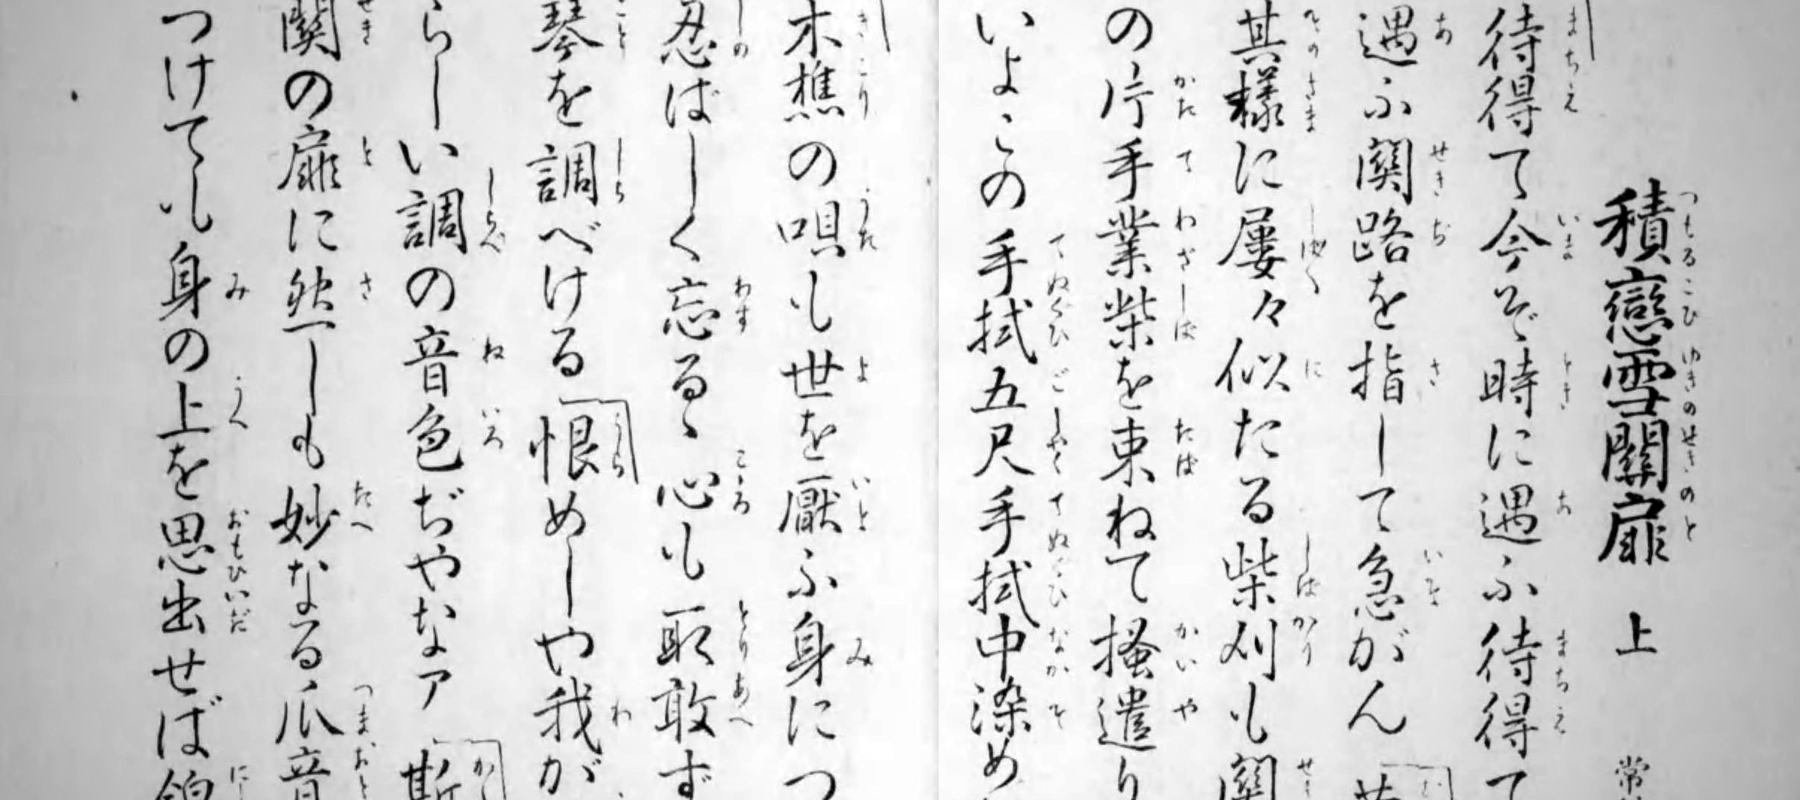 積戀雪關扉 上 常
待得て今ぞ時に遇ふ待得て
遇ふ關路を指して急がん
其様に屡々似たる柴刈も關
の片手業柴を束ねて掻遣り
いよこの手拭五尺手拭中染め
木樵の唄も世を厭ふ身につ
忍ばしく忘るゝ心も取敢ず
琴を調べける恨めしや我が
らしい調の音色ぢやなア 斯
關の扉に然しも妙なる爪音
つけても身の上を思出せば錦